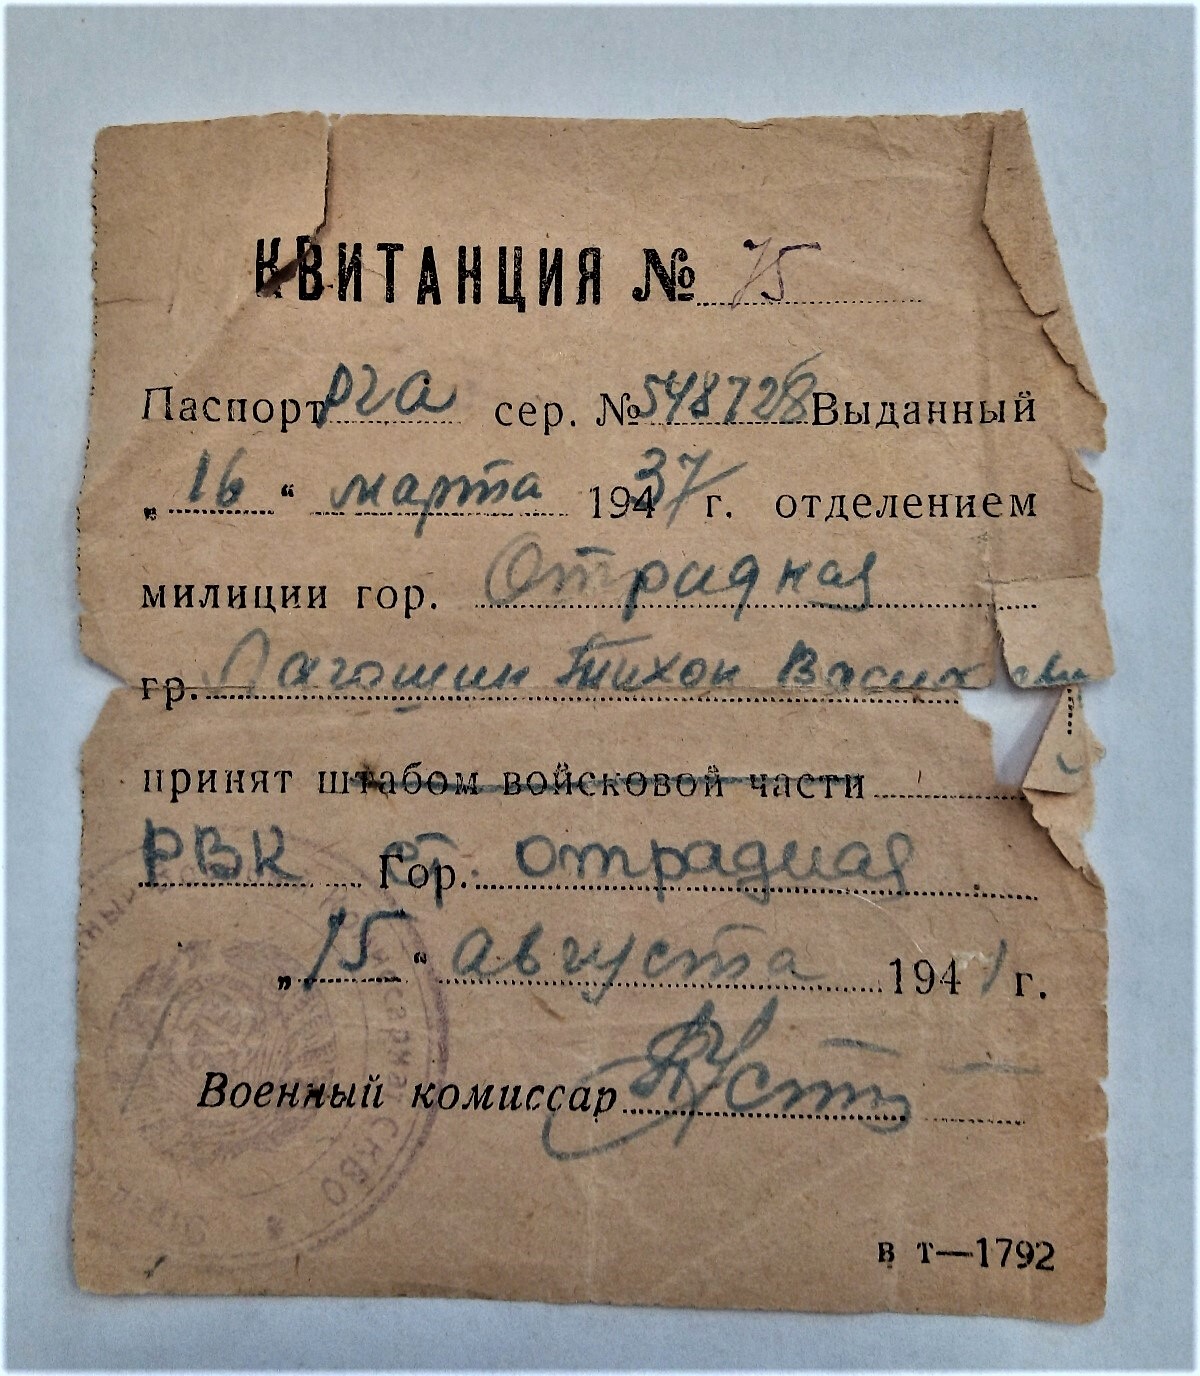 КВИТАНЦИЯ № 75
Паспорт РЧА сер. № 548728 Выданный
„16“ марта 1937 г. отделением
милиции гор. Отрадная
гр. Лагошин Тихон Василь евич
принят штабом войсковой части
РВК ст. Гор. Отрадная
„15“ августа 1941 г.
Военный комиссар
СКВО
в т—1792